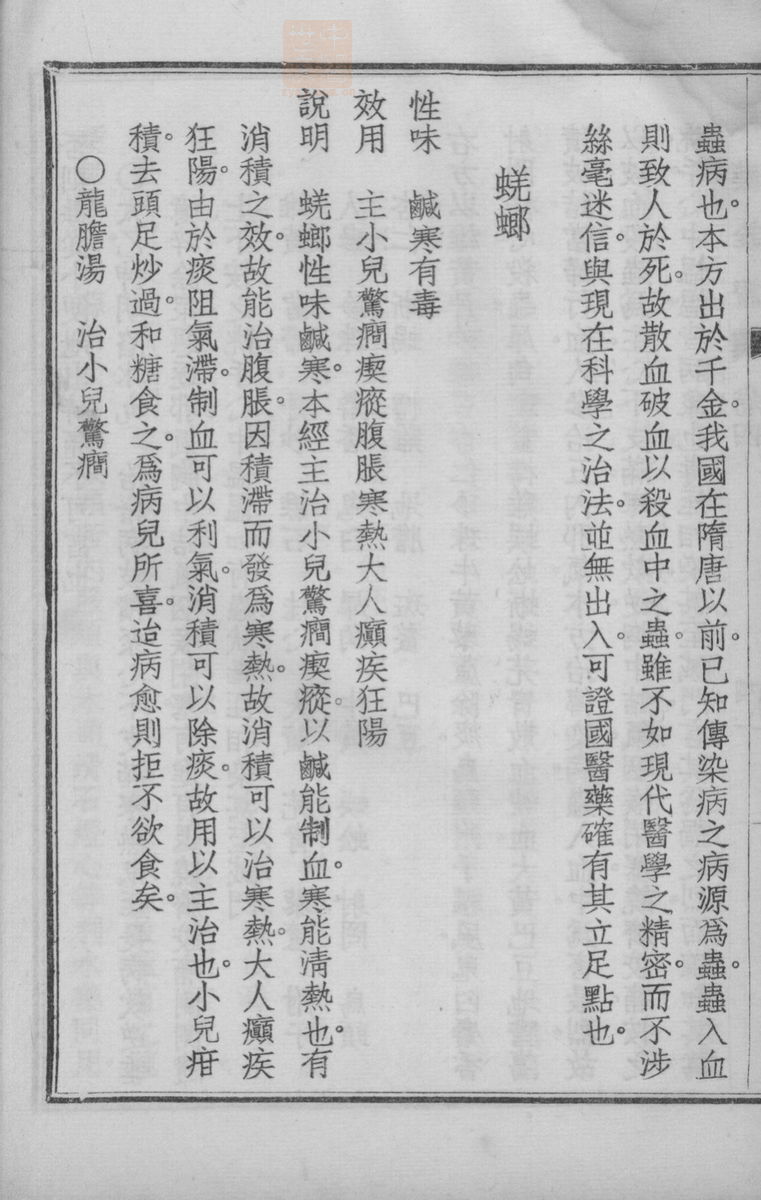 蟲病也。本方出於千金。我國在隋唐以前。已知傳染病之病源爲蟲。蟲入血
則致人於死。故散血破血以殺血中之蟲。雖不如現代醫學之精密。而不涉
絲毫迷信。與現在科學之治法。並無出入。可證國醫藥確有其立足點也。
蜣螂
性味　鹹寒有毒
效用　主小兒驚癎瘈瘲腹脹寒熱大人癲疾狂陽
說明　蜣螂性味鹹寒。本經主治小兒驚癎瘈瘲。以鹹能制血。寒能淸熱也。有
消積之效。故能治腹脹。因積滯而發爲寒熱。故消積可以治寒熱。大人癲疾
狂陽。由於痰阻氣滯。制血可以利氣。消積可以除痰。故用以主治也。小兒疳
積。去頭足炒過。和糖食之。爲病兒所喜。迨病愈則拒不欲食矣。
〇龍膽湯　治小兒驚癎